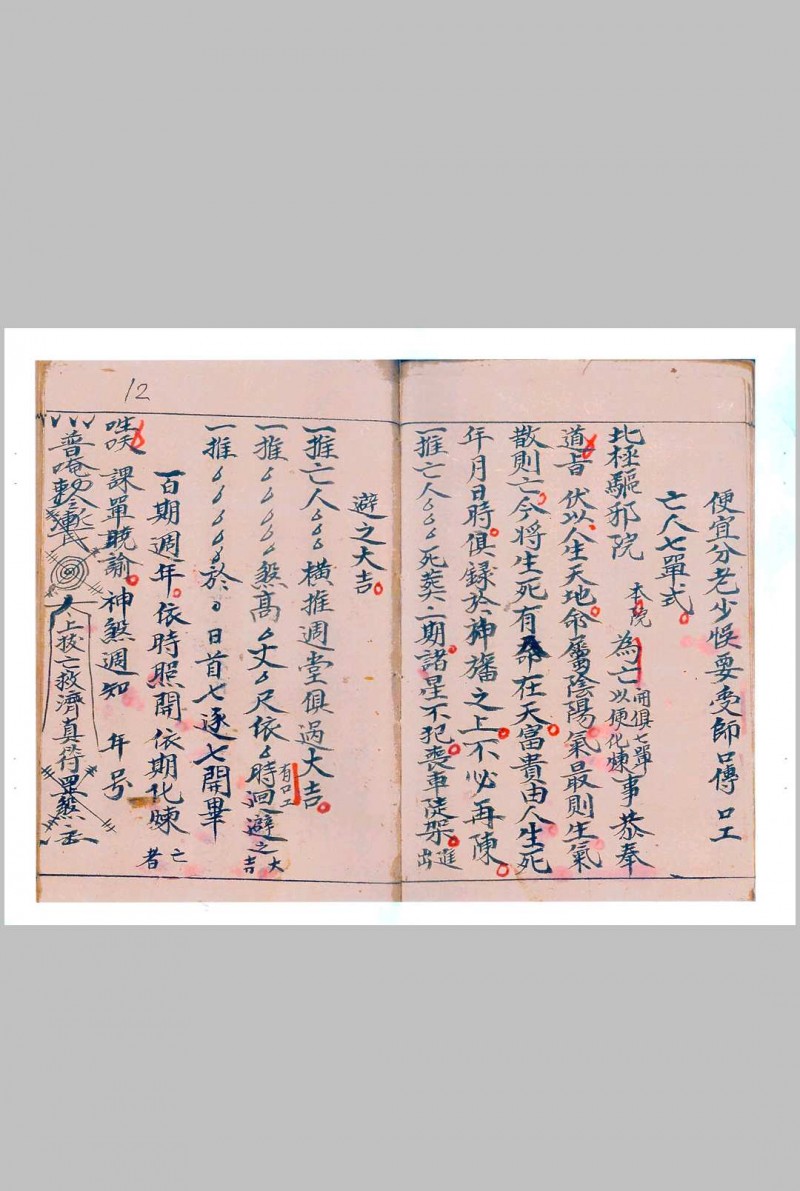 便宜分老少悞要受師口傳 口工
亡人七單式
北極驅邪院 本院 為亡 用俱七單 以便化煉 事恭奉
道旨 伏以人生天地命屬陰陽氣最則生氣
散則亡今將生死有命在天富貴由人生死
年月日時俱録於神旛之上不必再陳
一推亡人 死葬二期諸星不犯喪車陡架 進出
避之大吉
一推亡人 橫推週堂俱過大吉
一推 煞高 丈 尺依 時迴避之大吉 有口工
一推 於 日首七逐七開畢
百期週年依時照開依期化煉 亡者
課單曉諭神煞週知 年号
普唵勅令
上拔亡救濟真符罡煞
12